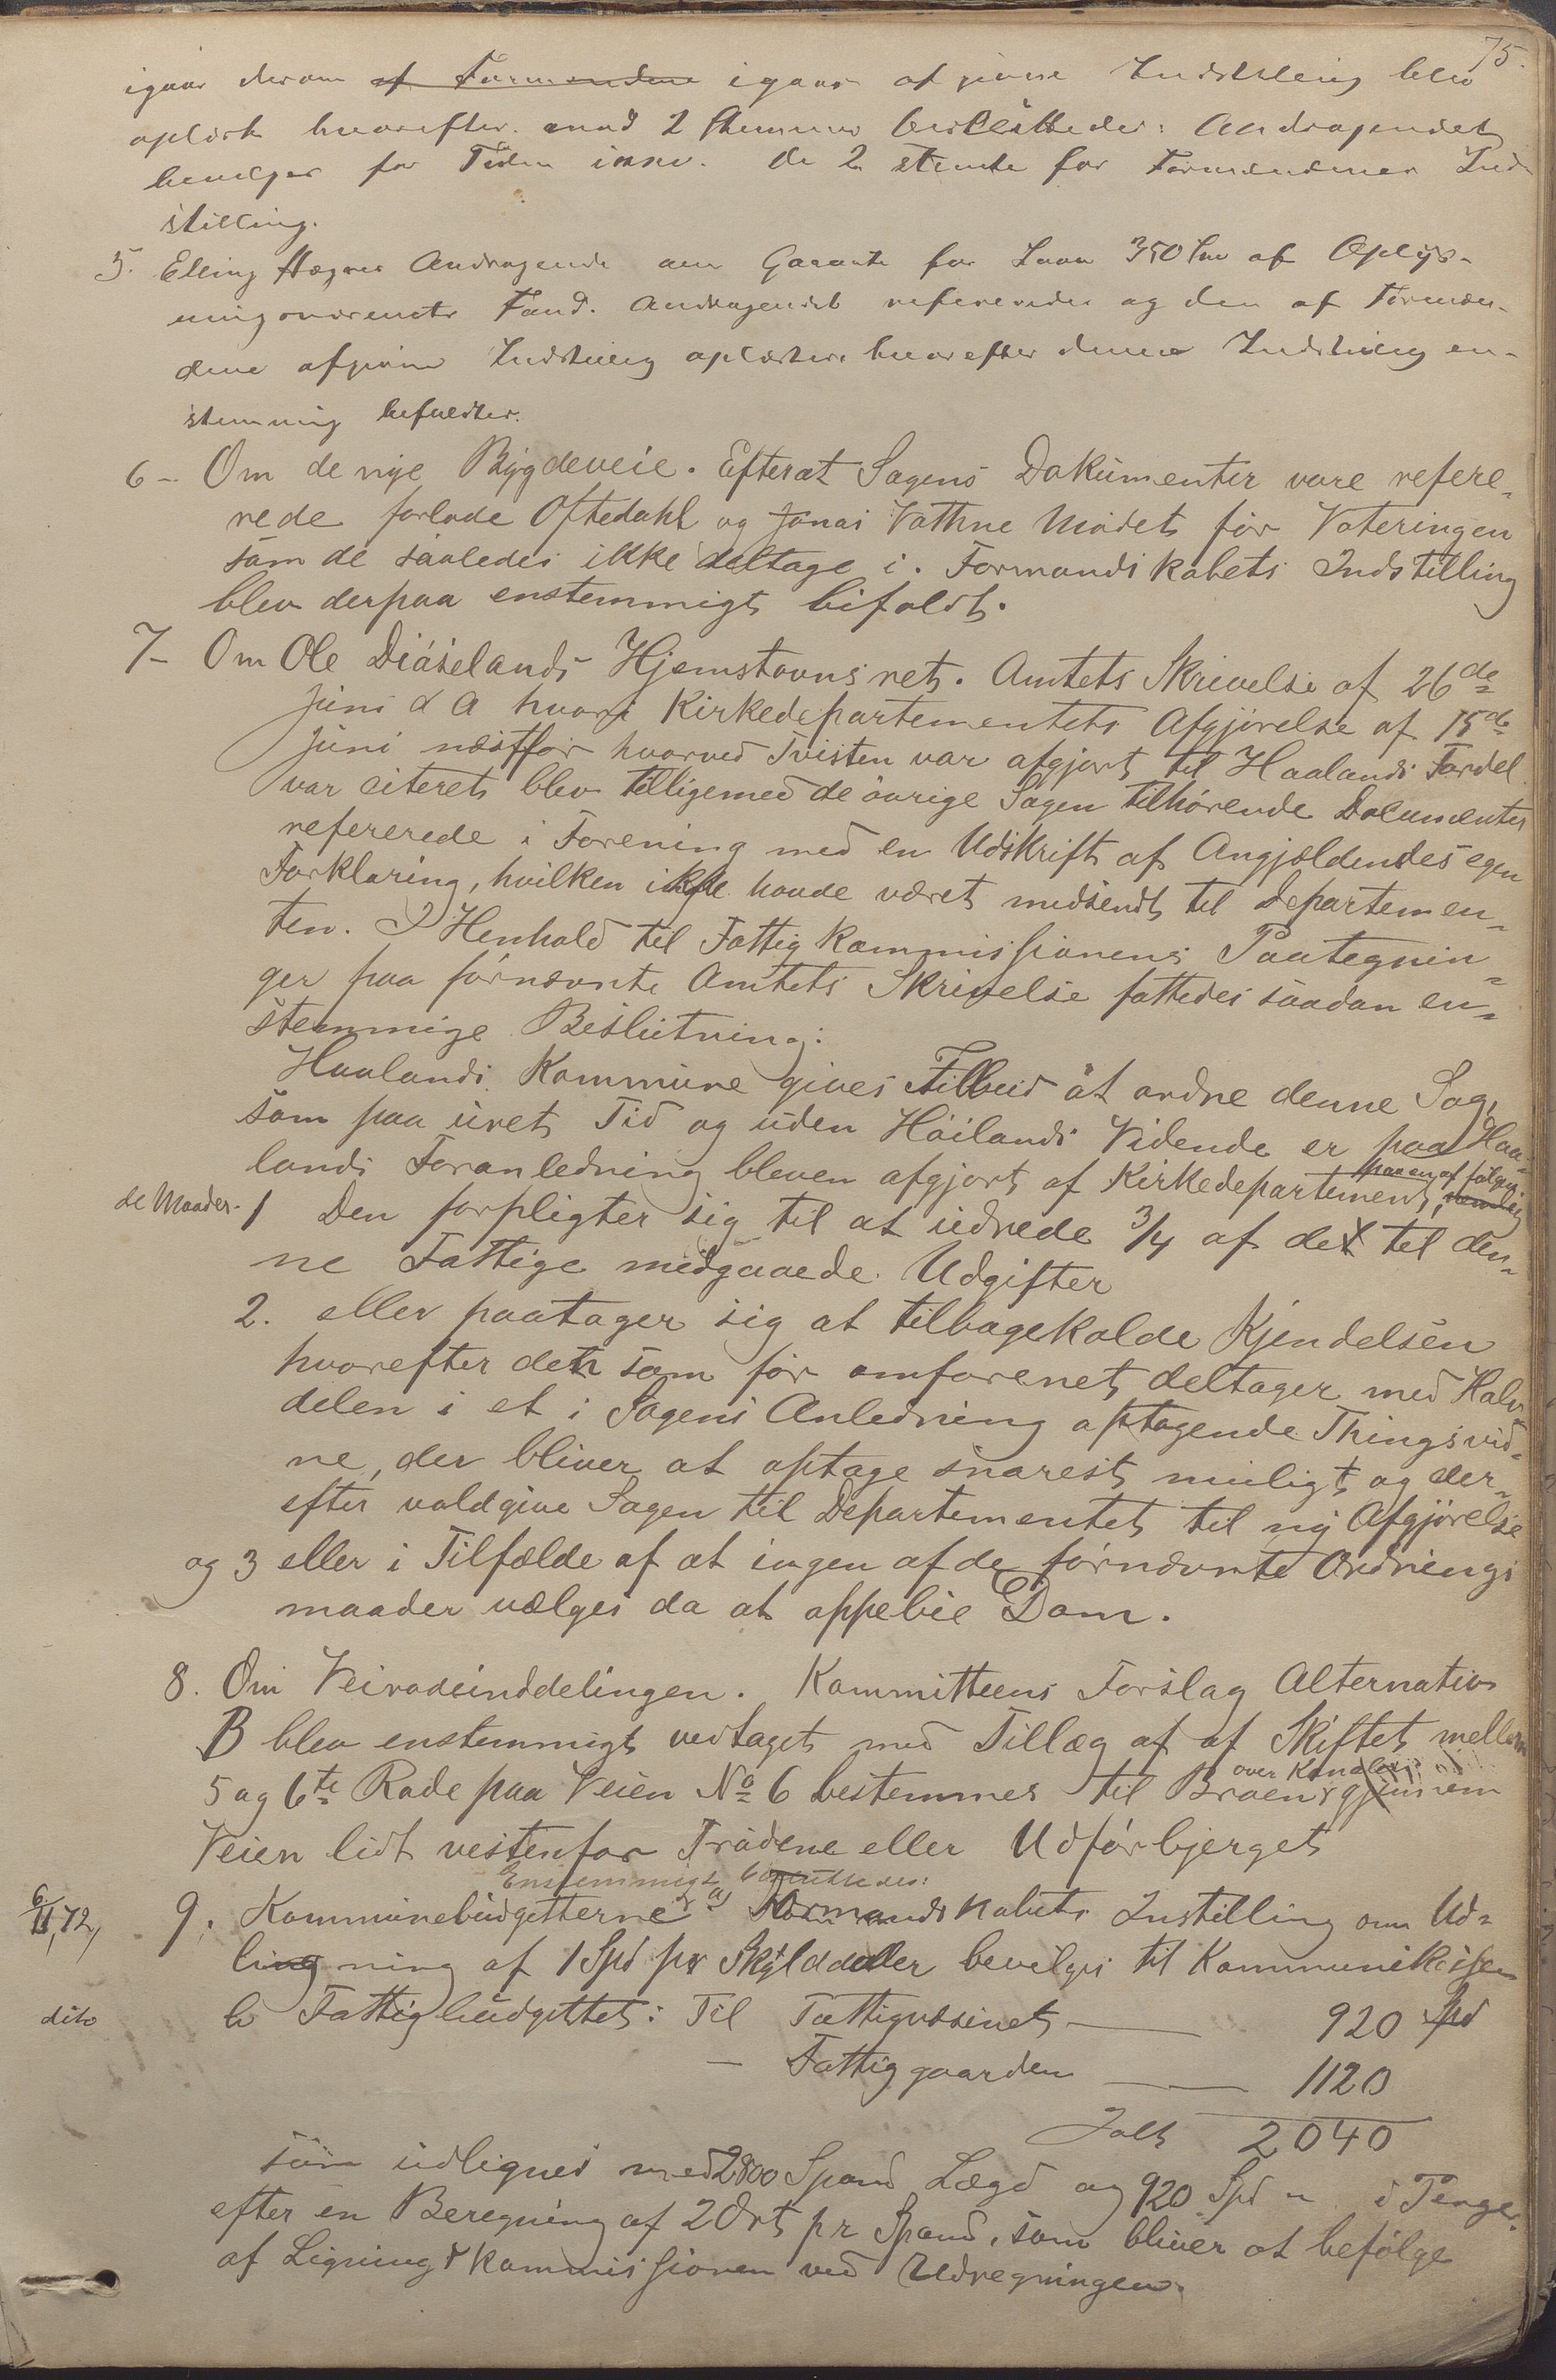 75.
igaar derom af Formændene igaar afgivne Indstilling blev
oplæst hvorefter mod 2 Stemmer besluttedes: Andragendet
bevilges for Tiden ikke. De 2 stemte for Formændenes Ind-
stilling.
5. Elling Andragende om Garanti for Laan 350 Spd af Oplys-
ningsvæsenets Fond. Andragendet refereredes og den af Formæn-
dene afgivne Indstilling oplæstes hvorefter denne Indstilling en-
stemmig bifaldtes.
6 - Om de nye Bygdeveie. Efterat Sagens Dokumenter vare refere-
rede forlode Oftedahl og Jonas Vathne Mødet før Voteringen
som de saaledes ikke deltage i. Formandskabets Indstilling
blev derpaa enstemmigt bifaldt.
7 - Om Ole Hjemstavnsret. Amtets Skrivelse af 26de
Juni d A hvori Kirkedepartementets Afgjørelse af 15de
Juni næstfør hvorved Tvisten var afgjort til Haalands Fordel
var citeret blev tilligemed de øvrige Sagen tilhørende Documenter
refererede i Forening med en Udskrift af Angjældendes egen
Forklaring, hvilken ikke havde været medsendt til Departemen-
ten. I Henhold til Fattigkommissionens Paategnin-
ger paa førnævnte Amtets Skrivelse fattedes saadan en-
stemmige Beslutning:
Haalands Kommune gives Tilbud at ordne denne Sag,
som paa uret Tid og uden Høilands Vidende er paa Haa-
lands Foranledning bleven afgjort af Kirkedepartement, nemlig
paa en af følgen-
de Maader. 1 Den forpligter sig til at udrede 3/4 af det til den-
ne Fattige medgaaede Udgifter
2. eller paatager sig at tilbagekalde Kjendelsen
hvorefter den som før omforenet deltager med Halv-
delen i et i Sagens Anledning optagende Thingsvid-
ne, der bliver at optage snarest muligt og der-
efter voldgive Sagen til Departementet til ny Afgjørelse
og 3 eller i Tilfælde af at ingen af de førnævnte Ordnings
maader vælges da at oppebie Dom.
8. Om Veirodeinddelingen. Kommitteens Forslag Alternativ
B blev enstemmigt vedtaget med Tillæg af af Skiftet mellem
5 og 6te Rode paa Veien No 6 bestemmes til Broen gjennem
over Kanalen
Veien lidt vestenfor Trådene eller Udførbjerget
Enstemmigt besluttedes:
6/11, 72, 9. Kommunebudgetterne a) Formandskabets Instilling om Ud-
ling ning af 1 Spd pr Skylddaler bevilges til Kommunekassen
dito b Fattigbudgettet: Til Fattigvæsenet — 920 Spd
— Fattiggaarden — 1120
Ialt 2040
som udlignes med 2800 Spand Lægd og 920 Spd " i Penge
efter en Beregning af 2 Ort pr Spand, som bliver at befølge
af Ligningskommissionen ved Udregningen.